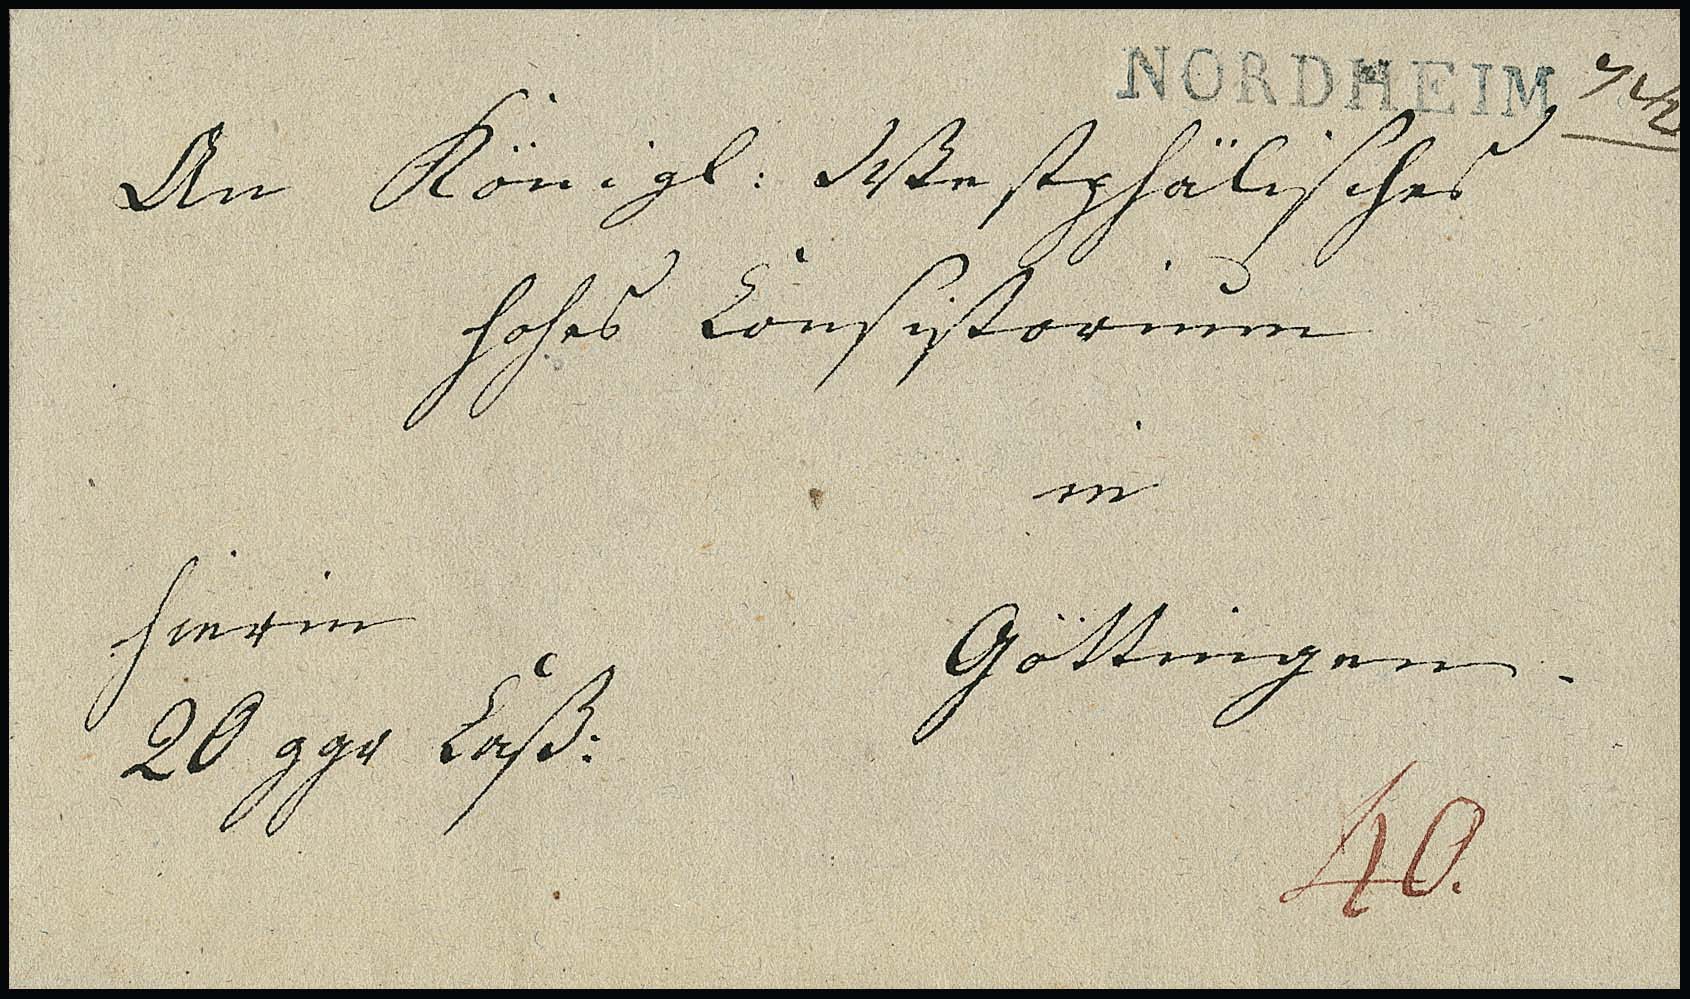 NORDHEIM
An Königl: Westphälisches
hohes Consistorium
in
Göttingen.
hierin
20 ggr Cass:
40.